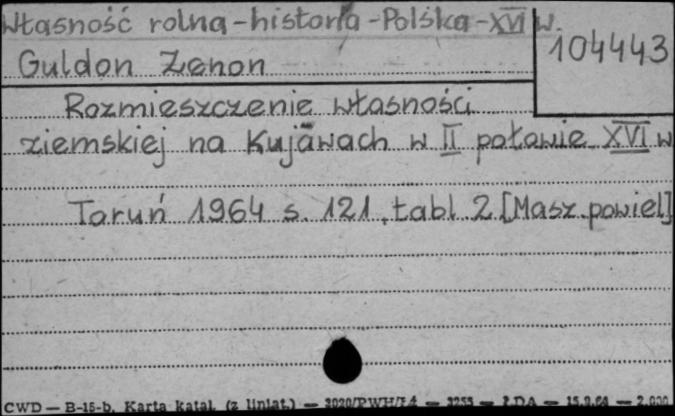 Własność rolna - historia - Polska - XVI w.
104443
Guldon Zenon
Rozmieszczenie własności
ziemskiej na Kujawach w II połowie XVI w
Toruń 1964 s. 121, tabl. 2 [Masz. powiel]
CWD — B-15-b. Karta katal. (z liniat.) — 3020/PWH/74 — 3255 — PDA — 15.9.64 — 2.000